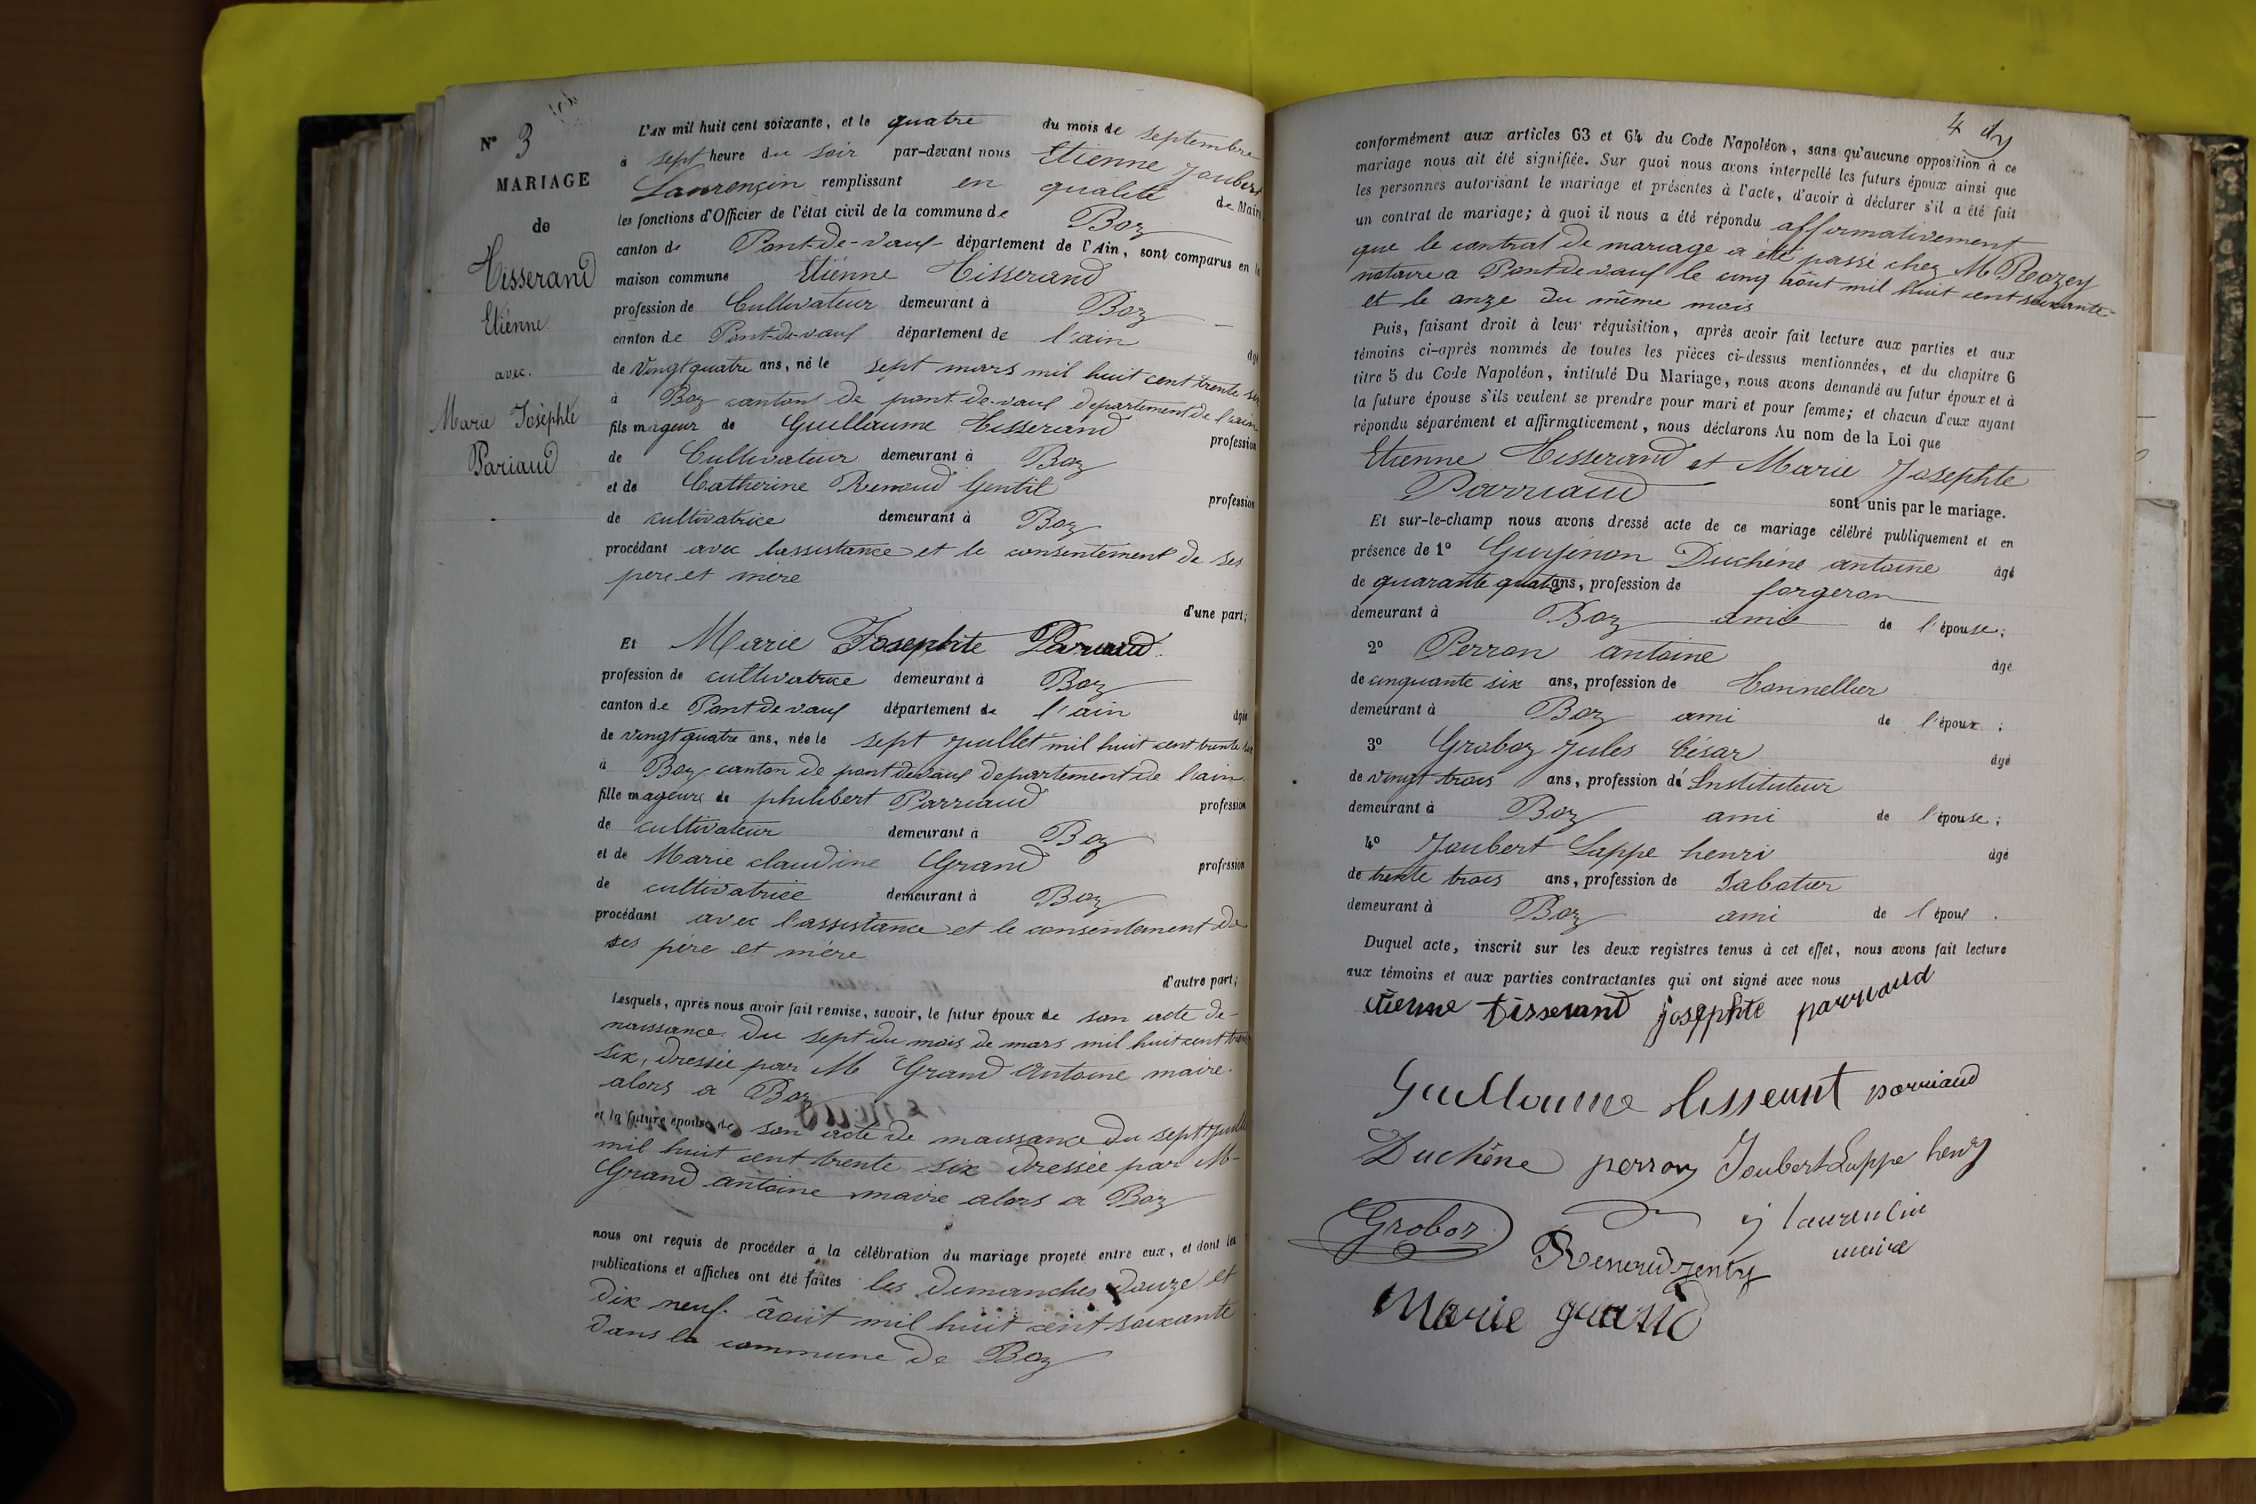 N° 3
MARIAGE
de
Tisserand
Etiénne
avec.
Marie Josèphte
Pariaud
L'AN mil huit cent soixante, et le quatre du mois de septembre
à sept heure du soir par-devant nous Etienne Joubert
Laurençin remplissant en qualité de Maire
les fonctions d'Officier de l'état civil de la commune de Boz
canton de Pont-de-Vaux département de l'Ain, sont comparus en la
maison commune Etiénne Tisserand
profession de Cultivateur demeurant à Boz
canton de Pont-de-vaux département de l'ain âgé
de Vingt quatre ans, né le sept mars mil huit cent trente six
à Boz canton de pont-de-vaux departement de l'ain
fils mageur de Guillaume Tisserand profession
de Cultivateur demeurant à Boz
et de Catherine Renoud Gentil profession
de cultivatrice demeurant à Boz
procédant avec lassistance et le consentement de ses
pere et mère
d'une part;
Et Marie Josephte Parriaud
profession de cultivatrice demeurant à Boz
canton de Pont de vaux département de l'ain âgée
de vingt quatre ans, née le sept juillet mil huit cent trente six
à Boz canton de pont de vaux departement de l'ain
fille mageure de philibert Parriaud profession
de cultivateur demeurant à Boz
et de Marie claudine Grand profession
de cultivatrice demeurant à Boz
procédant avec l'assistance et le consentement de
ses père et mère
d'autre part;
Lesquels, après nous avoir fait remise, savoir, le futur époux de son acte de
naissance du sept du mois de mars mil huit cent trente
six, dressée par M Grand Antoine maire
alors a Boz
et la future épouse de son acte de naissance du sept juillet
mil huit cent trente six dressée par M
Grand antoine maire alors a Boz
nous ont requis de procéder à la célébration du mariage projeté entre eux, et dont les
publications et affiches ont été faites les dimanches douze et
dix neuf âout mil huit cent soixante
dans la commune de Boz
4
conformément aux articles 63 et 64 du Code Napoléon, sans qu'aucune opposition à ce
mariage nous ait été signifiée. Sur quoi nous avons interpellé les futurs époux ainsi que
les personnes autorisant le mariage et présentes à l'acte, d'avoir à déclarer s'il a été fait
un contrat de mariage; à quoi il nous a été répondu affirmativement
que le contrat de mariage a été passé chez M Rozey
notaire a Pont de vaux le cinq âout mil huit cent soixante
et le onze du même mois
Puis, faisant droit à leur réquisition, après avoir fait lecture aux parties et aux
témoins ci-après nommés de toutes les pièces ci-dessus mentionnées, et du chapitre 6
titre 5 du Code Napoléon, intitulé Du Mariage, nous avons demandé au futur époux et à
la future épouse s'ils veulent se prendre pour mari et pour femme; et chacun d'eux ayant
répondu séparément et affirmativement, nous déclarons Au nom de la Loi que
Etienne Tisserand et Marie Josephte
Parriaud sont unis par le mariage.
Et sur-le-champ nous avons dressé acte de ce mariage célébré publiquement et en
présence de 1° Guyénon Duchéne antoine âgé
de quarante quatre ans, profession de forgeron
demeurant à Boz amis de l'épouse;
2° Perron antoine âgé
de cinquante six ans, profession de Tonnellier
demeurant à Boz ami de l'époux;
3° Groboz Jules César âgé
de vingt trois ans, profession de Instituteur
demeurant à Boz ami de l'épouse;
4° Joubert Lappe henri âgé
de trente trois ans, profession de Sabotier
demeurant à Boz ami de l'époux.
Duquel acte, inscrit sur les deux registres tenus à cet effet, nous avons fait lecture
aux témoins et aux parties contractantes qui ont signé avec nous
étienne tisserand josephte parriaud
Guillaume tisserant parriaud
Duchêne perron Joubert Lappe henry
Groboz j laurencin
Renoud genty maire
Marie grand